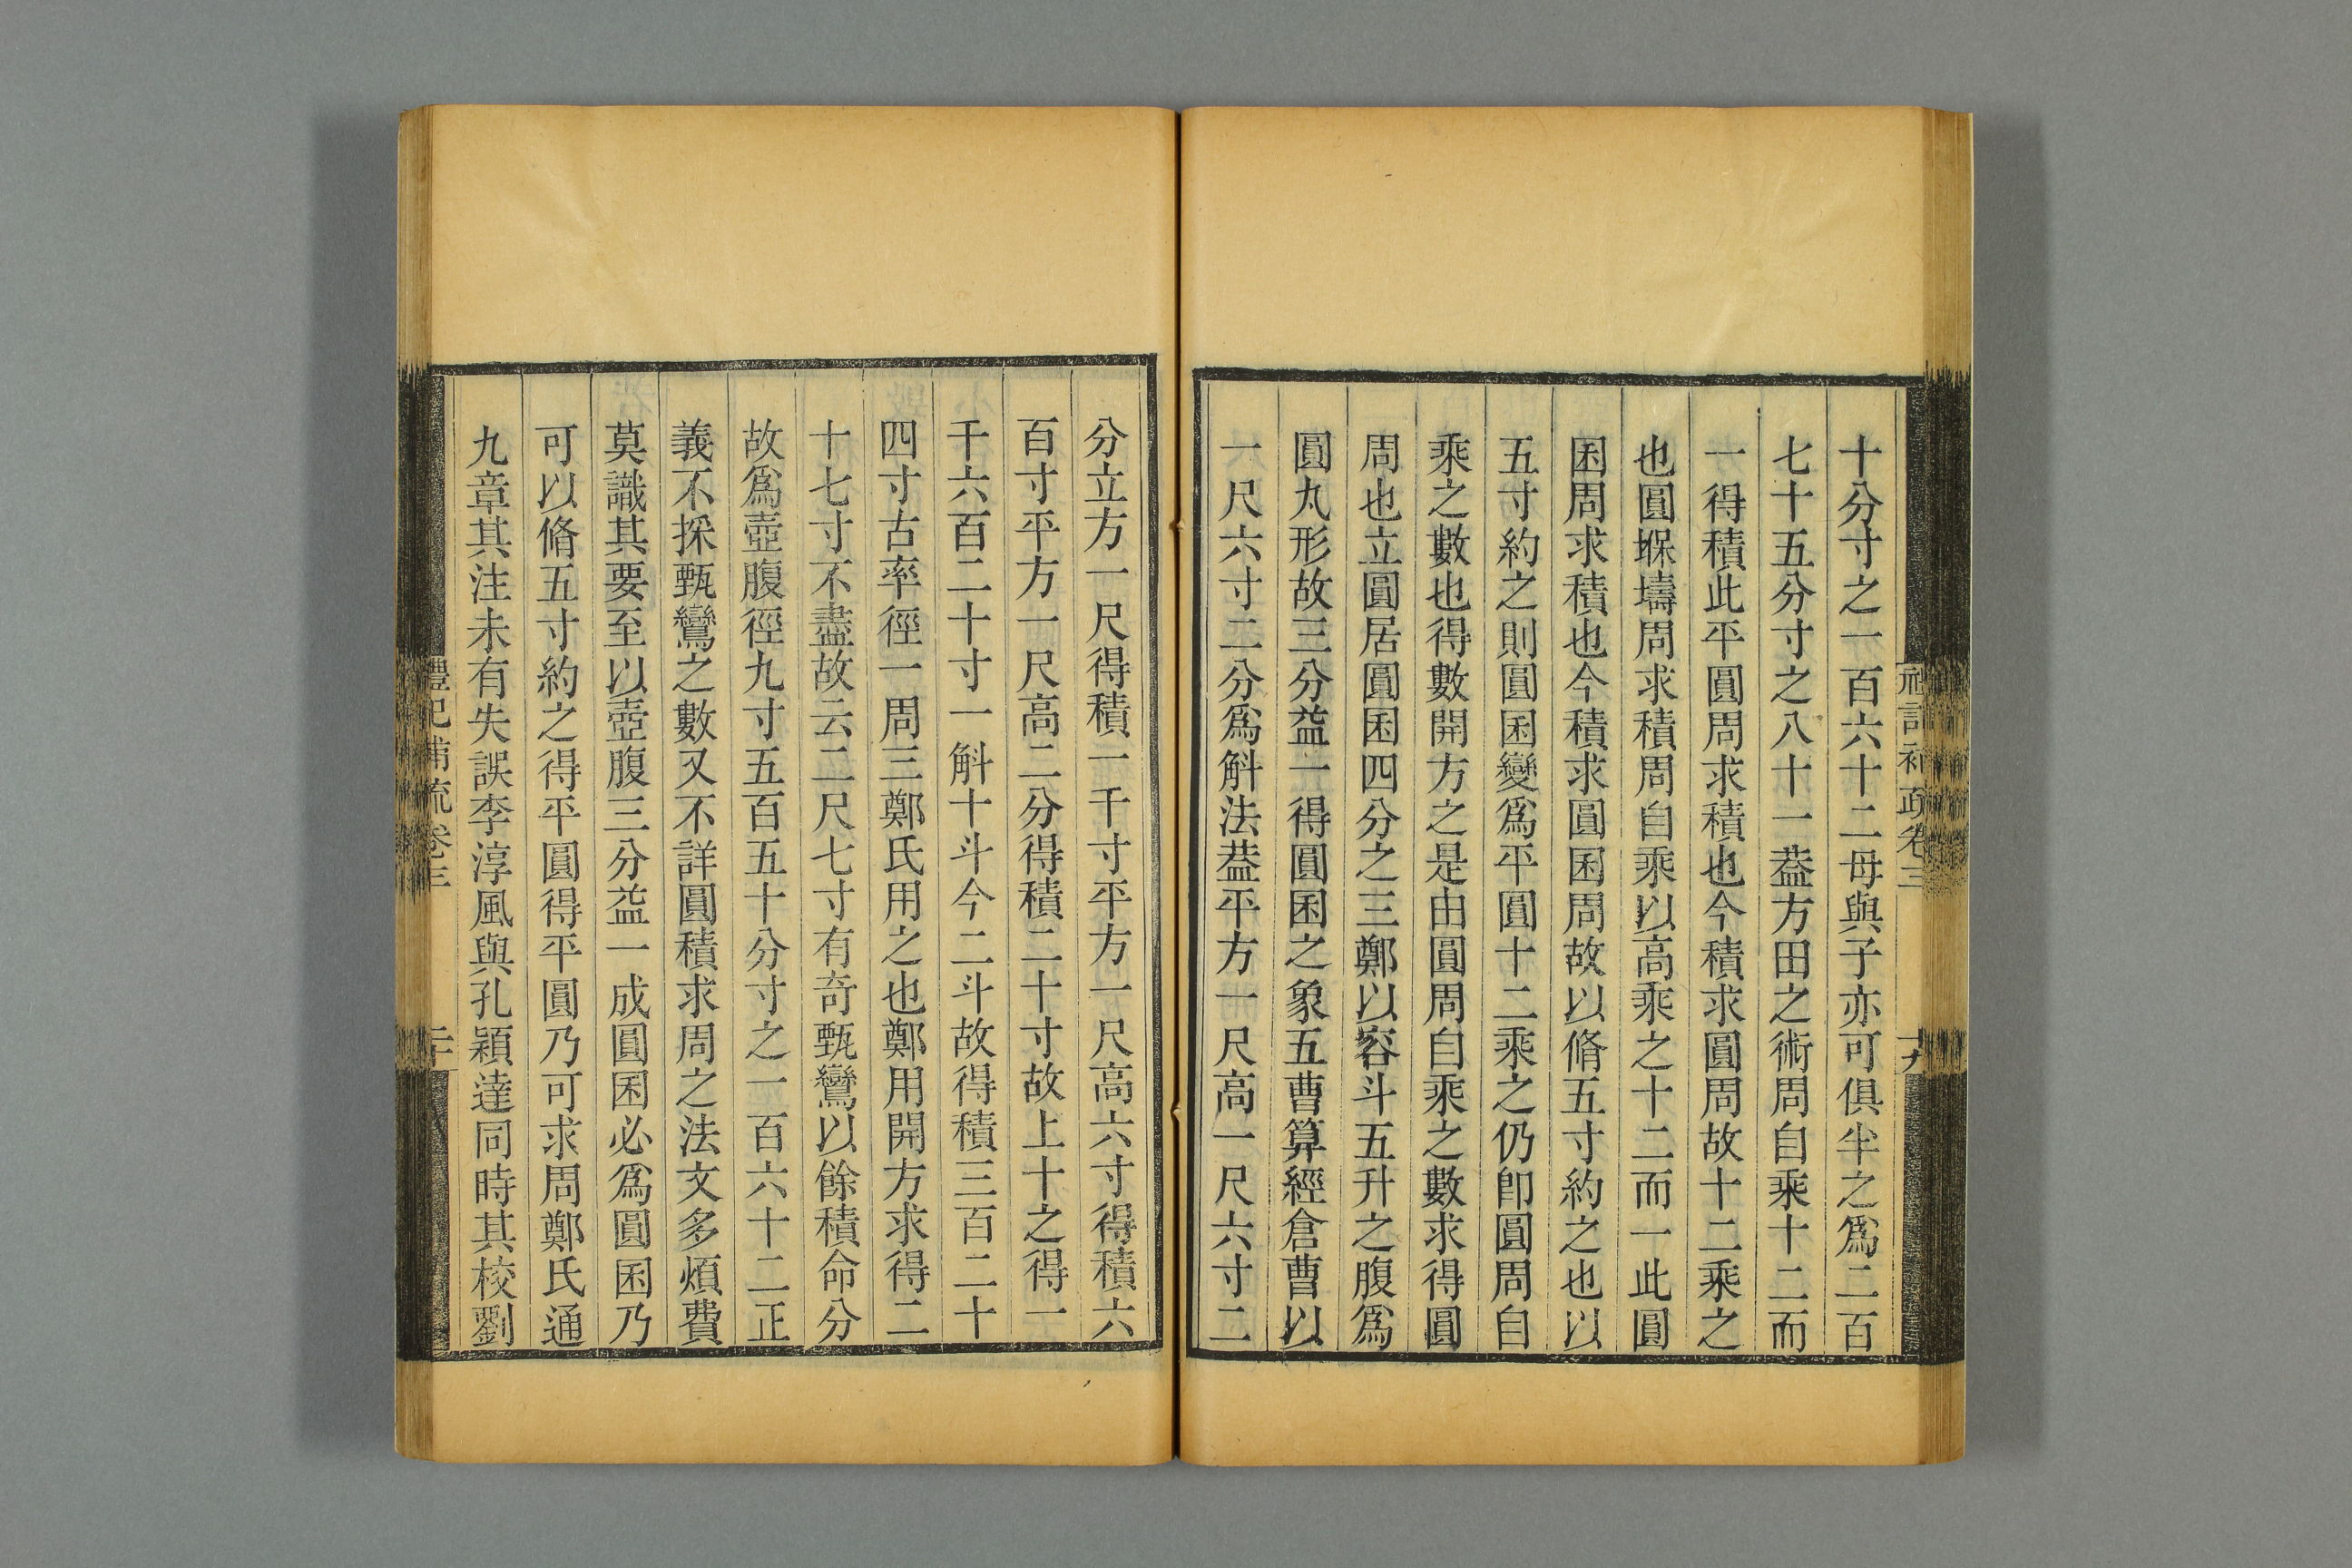 十分寸之一百六十二母與子亦可俱半之爲二百
七十五分寸之八十一葢方田之術周自乘十二而
一得積此平圓周求積也今積求圓周故十二乘之
也圓堢壔周求積周自乘以高乘之十二而一此圓
囷周求積也今積求圓囷周故以脩五寸約之也以
五寸約之則圓囷變爲平圓十二乘之仍卽圓周自
乘之數也得數開方之是由圓周自乘之數求得圓
周也立圓居圓囷四分之三鄭以容斗五升之腹爲
圓丸形故三分益一得圓囷之象五曹算經倉曹以
一尺六寸二分爲斛法葢平方一尺高一尺六寸二
禮記補疏卷三
十九
分立方一尺得積一千寸平方一尺高六寸得積六
百寸平方一尺高二分得積二十寸故上十之得一
千六百二十寸一斛十斗今二斗故得積三百二十
四寸古率徑一周三鄭氏用之也鄭用開方求得二
十七寸不盡故云二尺七寸有奇甄鸞以餘積命分
故爲壺腹徑九寸五百五十分寸之一百六十二正
義不採甄鸞之數又不詳圓積求周之法文多煩費
莫識其要至以壺腹三分益一成圓囷必爲圓囷乃
可以脩五寸約之得平圓得平圓乃可求周鄭氏通
九章其注未有失誤李淳風與孔穎達同時其校劉
禮記補疏卷三
二十